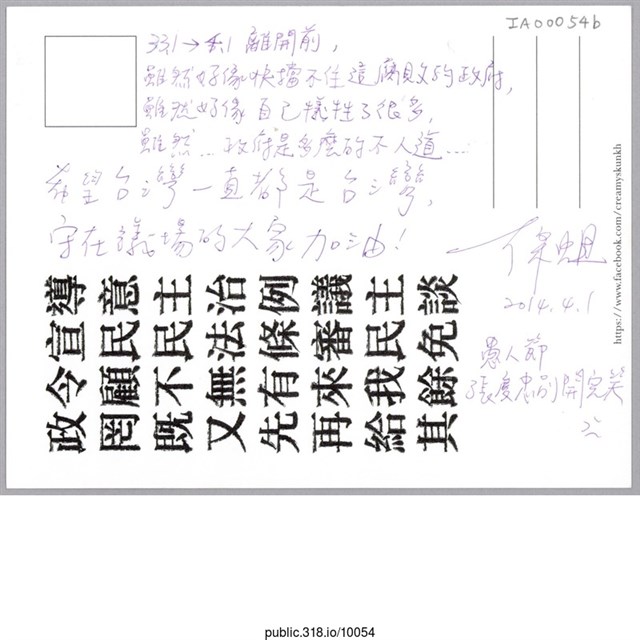 IA00054b
331→4.1 離開前，
雖然好像快擋不住這腐敗的政府，
雖然好像自己犧牲了很多，
雖然…政府是多麼的不人道……
希望台灣一直都是台灣，
守在議場的大家加油！
2014.4.1
愚人節
別開完笑
https://www.facebook.com/creamyskunkh
政令宣導
罔顧民意
既不民主
又無法治
先有條例
再來審議
給我民主
其餘免談
public.318.io/10054